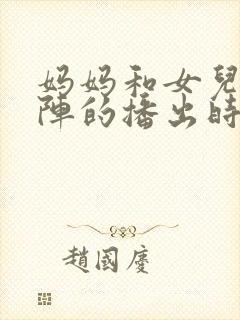 妈妈和女兒
陣的播出時
趙國慶